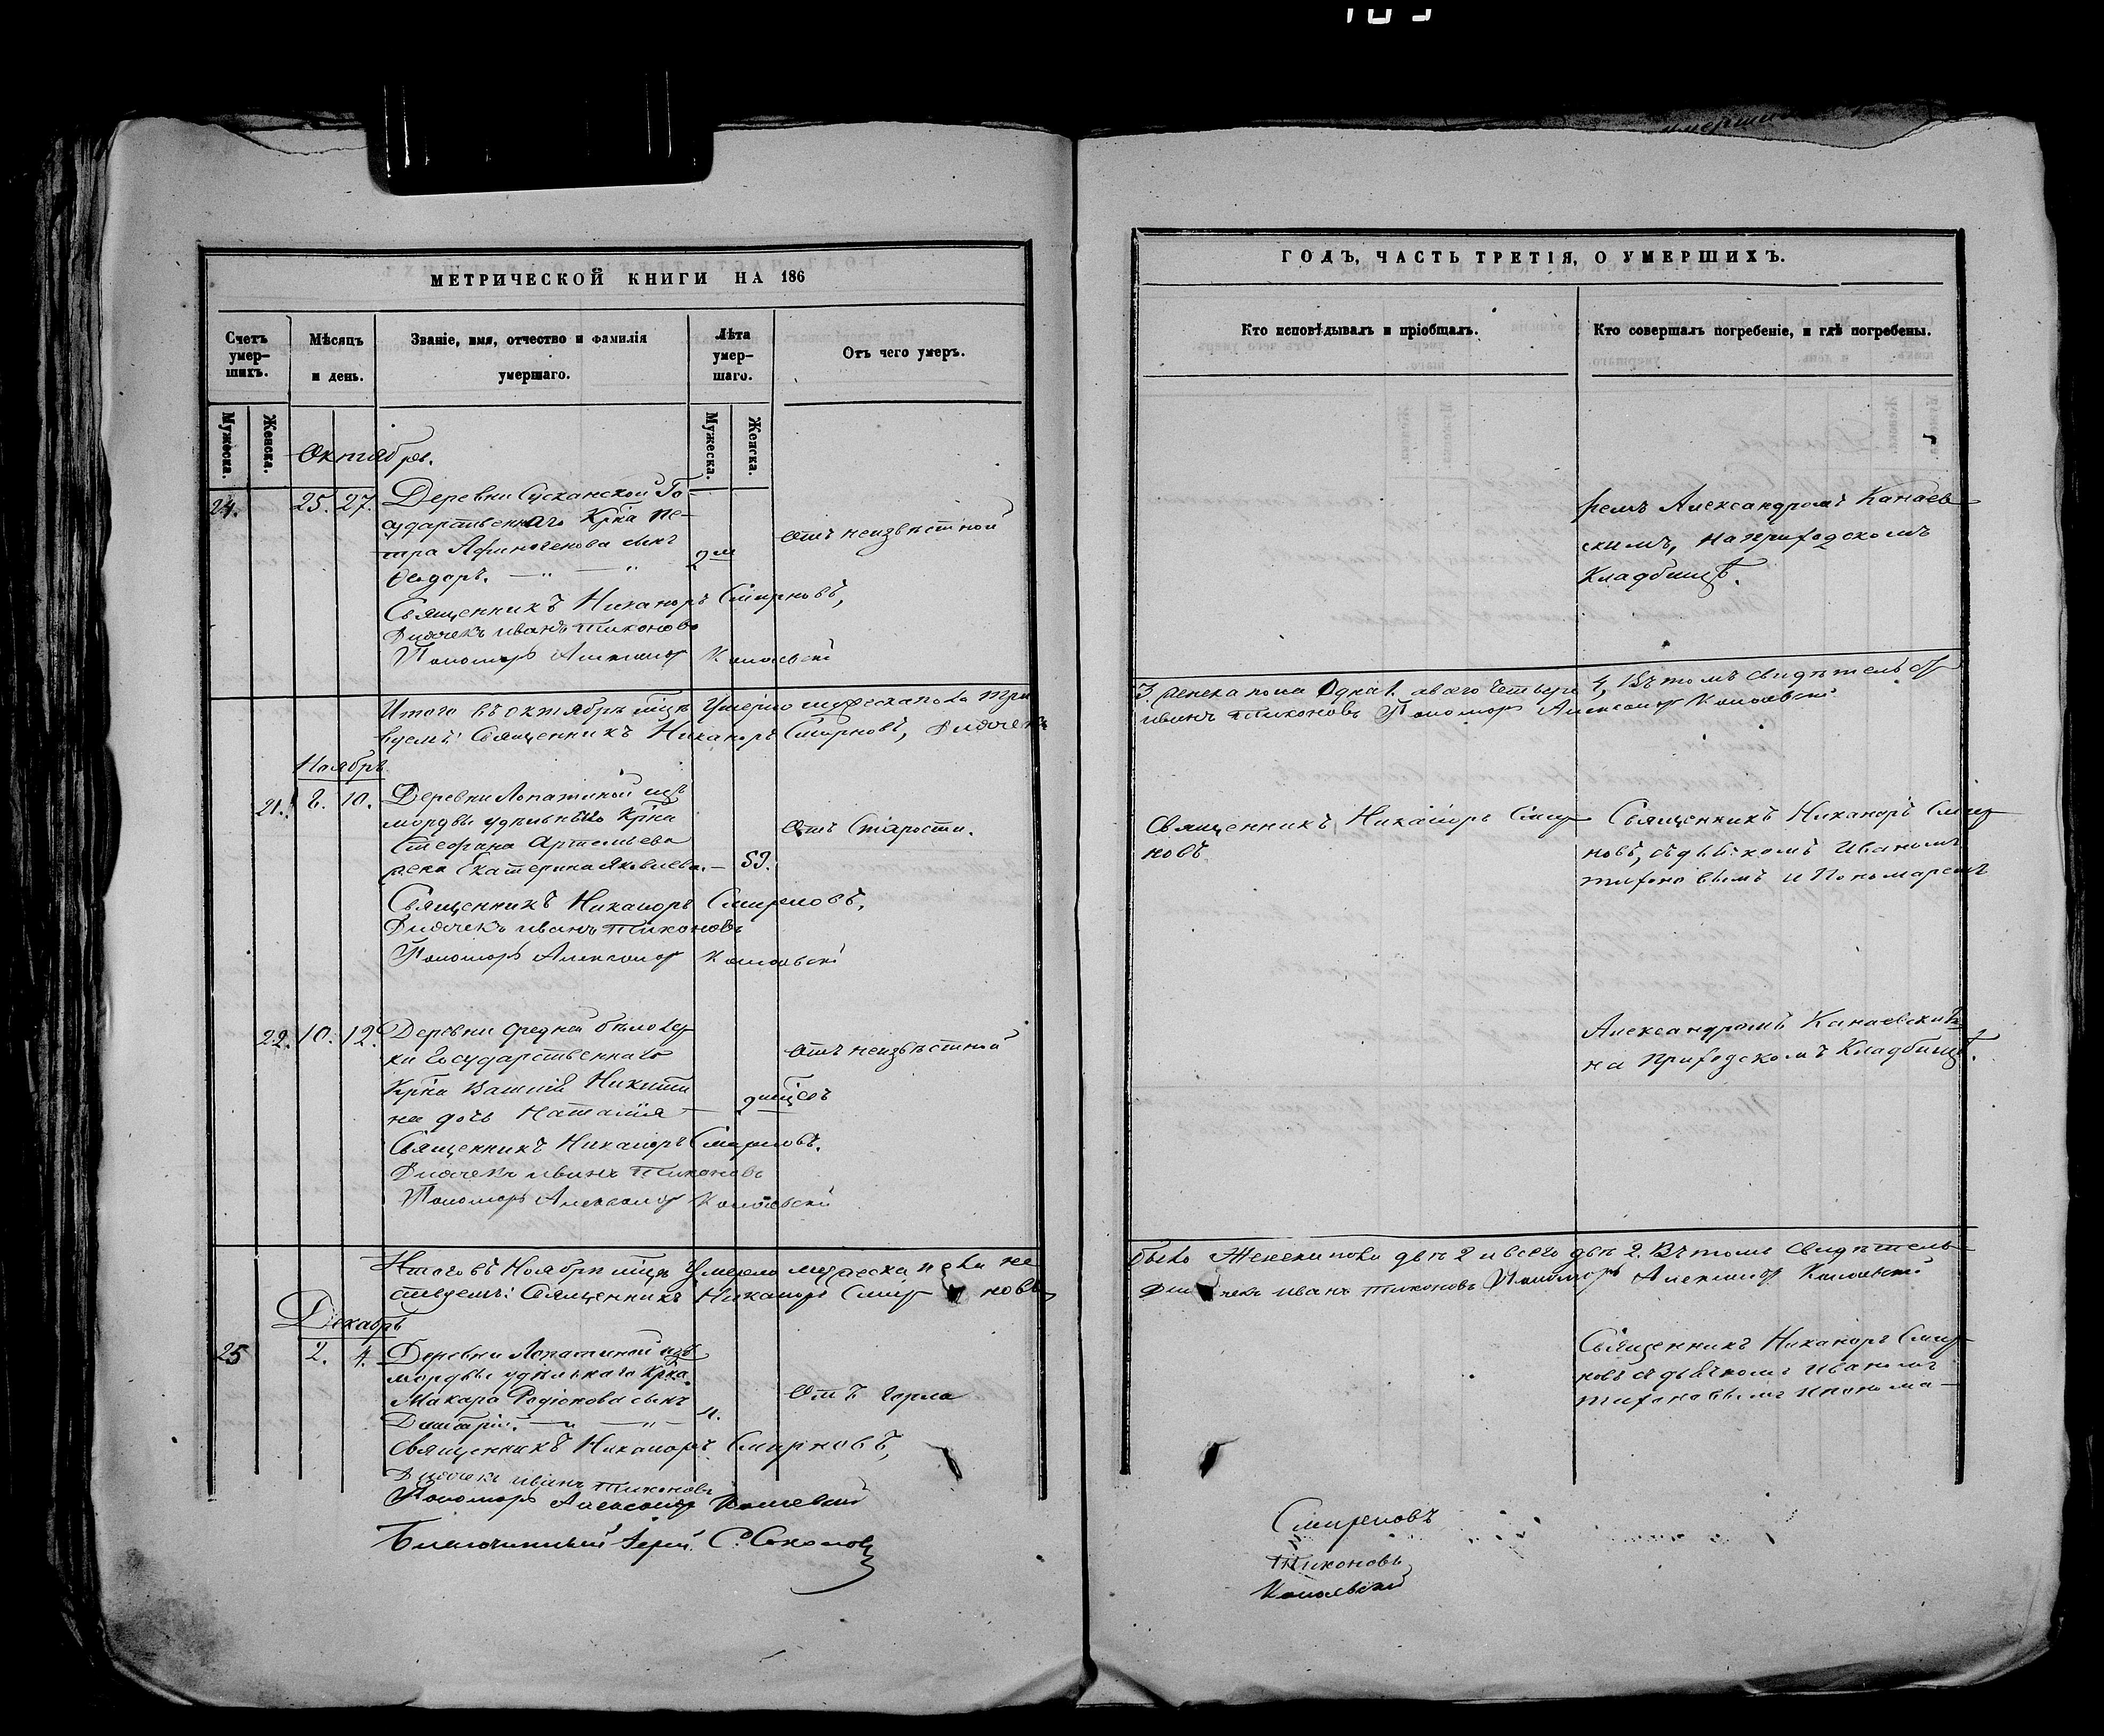 МЕТРИЧЕСКОЙ КНИГИ НА 186
Счетъ умер-
шихъ.
Мѣсяцъ
и день.
Званіе, имя, отчество и фамилія
умершаго.
Лѣта
умер-
шаго.
Отъ чего умеръ.
Мужеска.
Женска.
Мужеска.
Женска.
Октябрь.
24. 25. 27. Деревни Сусканской Го-
сударственнаго Крна Пе-
тра Афиногенова сынъ
Ѳедоръ. 2 м
Отъ неизвѣстной
Священникъ Никаноръ Смирновъ,
Дьячекъ Иванъ Тихоновъ
Пономарь Александръ Канаевскій
Итого въ октябрѣ мцѣ Умерло мужеска пола три
вуемъ: Священникъ Никаноръ Смирновъ, Дьячекъ
Ноябрь
21. 8. 10. Деревни Лопатиной изъ
мордвы удѣльнаго Крна
Стефана Артемьева
жена Екатерина Яковлева. 59.
Отъ Старости.
Священникъ Никаноръ Смирновъ,
Дьячекъ Иванъ Тихоновъ
Пономарь Александръ Канаевскій
22. 10. 12. Деревни Средней бѣлозер
ки Государственнаго
Крна Никити
на дочь Наталія 2 мцсъ
Отъ неизвѣстной
Священникъ Никаноръ Смирновъ.
Дьячекъ Иванъ Тихоновъ
Пономарь Александръ Канаевскій
Итого въ Ноябрѣ мцѣ Умерло мужеска пола не
ствуемъ: Священникъ Никаноръ Смирновъ,
Декабрь
25 2. 4. Деревни Лопатиной изъ
мордвы удѣльнаго Крна
Макара Родіонова сынъ
Димитрій.
Отъ Горла
Священникъ Никаноръ Смирновъ,
Дьячекъ Иванъ Тихоновъ
Пономарь Александръ Канаевскій
Благочинный Іерей С. Соколовъ
ГОДЪ, ЧАСТЬ ТРЕТІЯ, О УМЕРШИХЪ.
Кто исповѣдывалъ и пріобщалъ.
Кто совершалъ погребеніе, и гдѣ погребены.
ремъ Александромъ Канаев
скимъ, на приходскомъ
Кладбищѣ.
3, женска пола Одна 1. а всего четыре 4, Въ томъ свидѣтельст
Иванъ Тихоновъ Пономарь Александръ Канаевскій
Священникъ Никаноръ Смир
новъ
Священникъ Никаноръ Смир
новъ, съ дьячкомъ Иваномъ
Тихоновымъ и Пономаремъ
Александромъ Канаевскимъ
на Приходскомъ Кладбищѣ.
было Женска пола двѣ 2 и всего двѣ 2. Въ томъ Свидѣтель
Дьячекъ Иванъ Тихоновъ Пономарь Александръ Канаевскій
Священникъ Никаноръ Смир
новъ съ дьячкомъ Иваномъ
Тихоновымъ и понома-
Смирновъ
Тихоновъ
Канаевскій